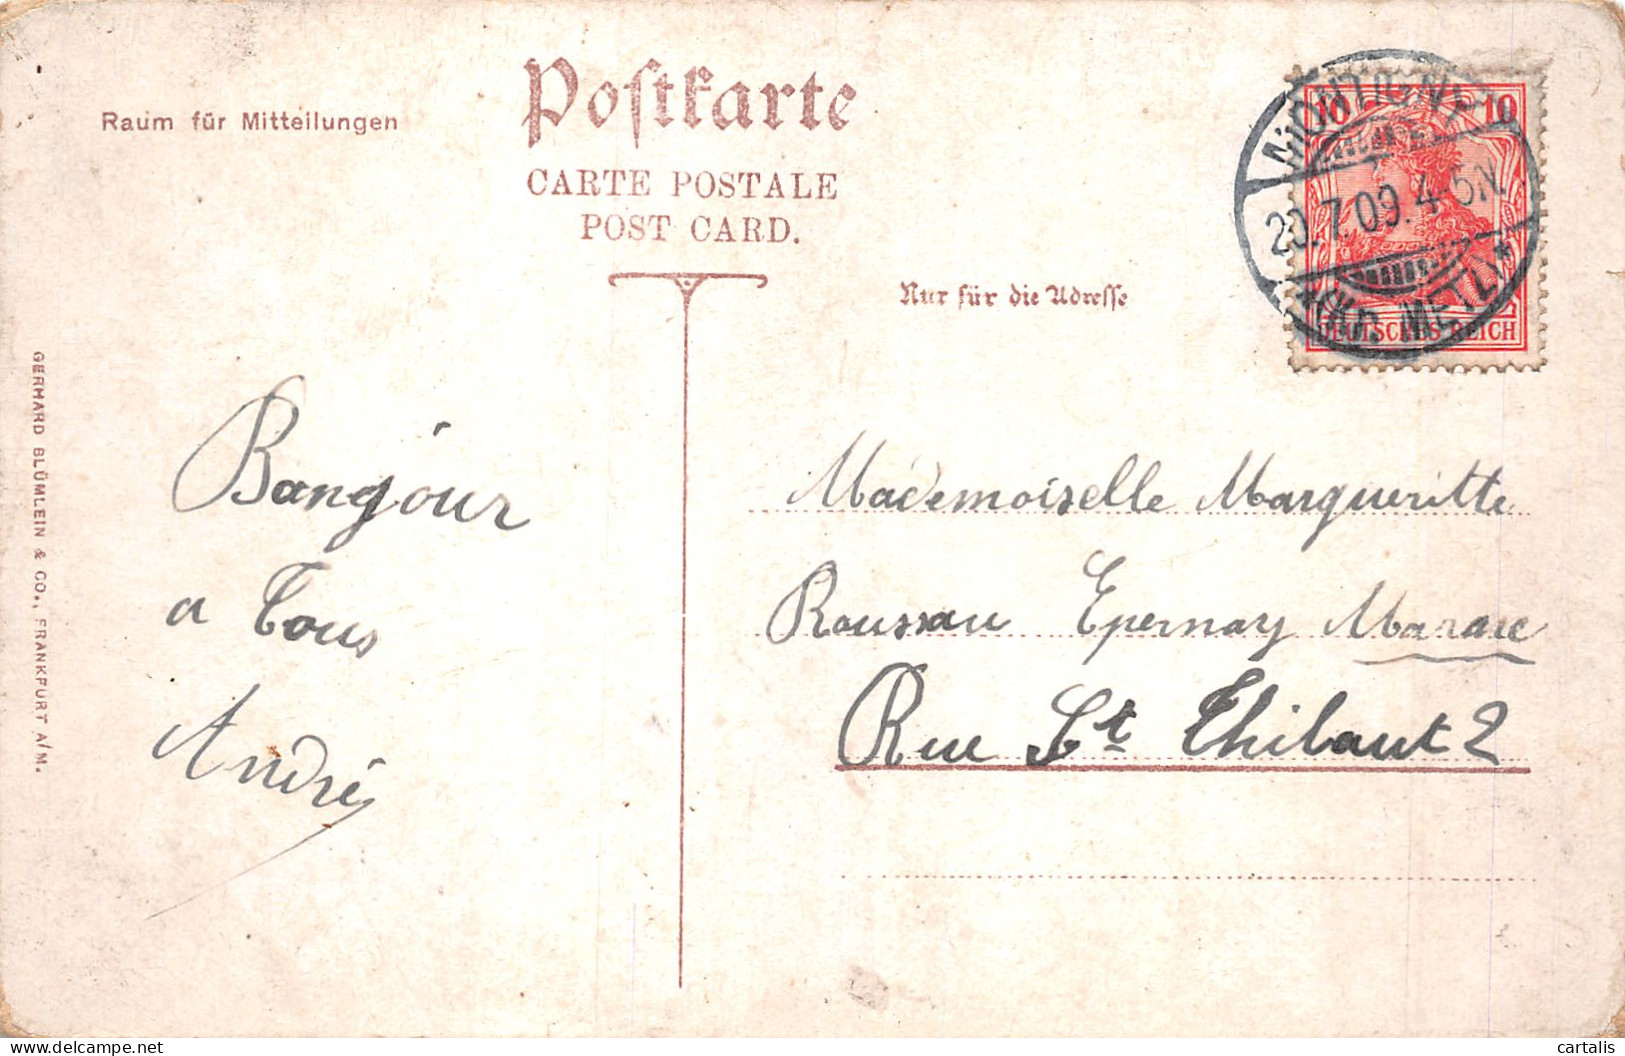 Postkarte
CARTE POSTALE
POST CARD.
Raum für Mitteilungen
Nur für die Adresse
MONTIGNY
20.7.09.4-5N.
* (KR. METZ) *
10 10
DEUTSCHES REICH
GERHARD BLÜMLEIN & CO., FRANKFURT A/M.
Bangjour
a Tous
André
Mademoiselle Margueritte
Roussau Epernay
Rue St Thibaut 2
cartalis